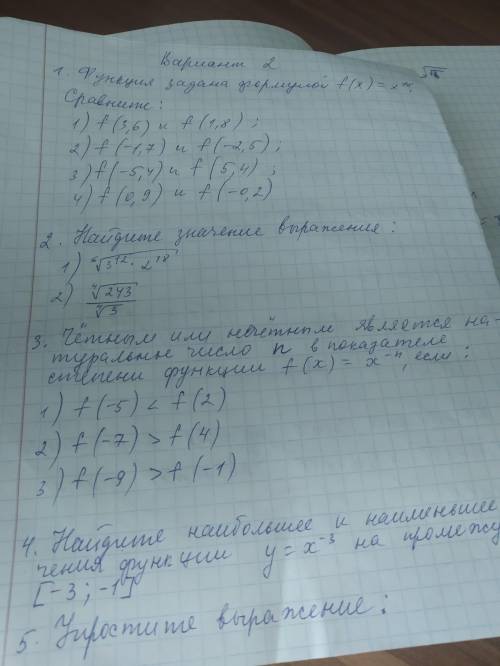 Вариант 2
1. Функция задана формулой f(x) =
Сравните:
1) f(3,6) и f(1,8);
2) f(-1,7) и f(-2,5);
3) f(-5,4) и f(5,4);
4) f(0,9) и f(-0,2)
2. Найдите значение выражения:
1) ⁶√3¹²·2¹⁸
2) ⁴√243 / ⁴√3
3. Чётным или нечётным является на-
туральное число n в показателе
степени функции f(x) = x⁻ⁿ, если:
1) f(-5) < f(2)
2) f(-7) > f(4)
3) f(-9) > f(-1)
4. Найдите наибольшее и наименьшее
чения функции y = x⁻³ на промежу
[-3; -1]
5. Упростите выражение: